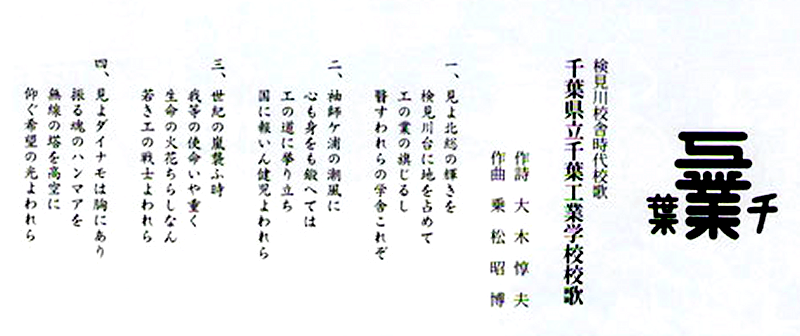 千葉
工業
検見川校舎時代校歌
千葉県立千葉工業学校校歌
作詩 大木惇夫
作曲 乗松昭博
一、見よ北総の輝きを
検見川台に地を占めて
工の業の旗じるし
翳すわれらの学舎これぞ
二、袖師ケ浦の潮風に
心も身をも鍛へては
工の道に挙り立ち
国に報いん健児よわれら
三、世紀の嵐襲ふ時
我等の使命いや重く
生命の火花ちらしなん
若き工の戦士よわれら
四、見よダイナモは胸にあり
振る魂のハンマアを
無線の塔を高空に
仰ぐ希望の光よわれら